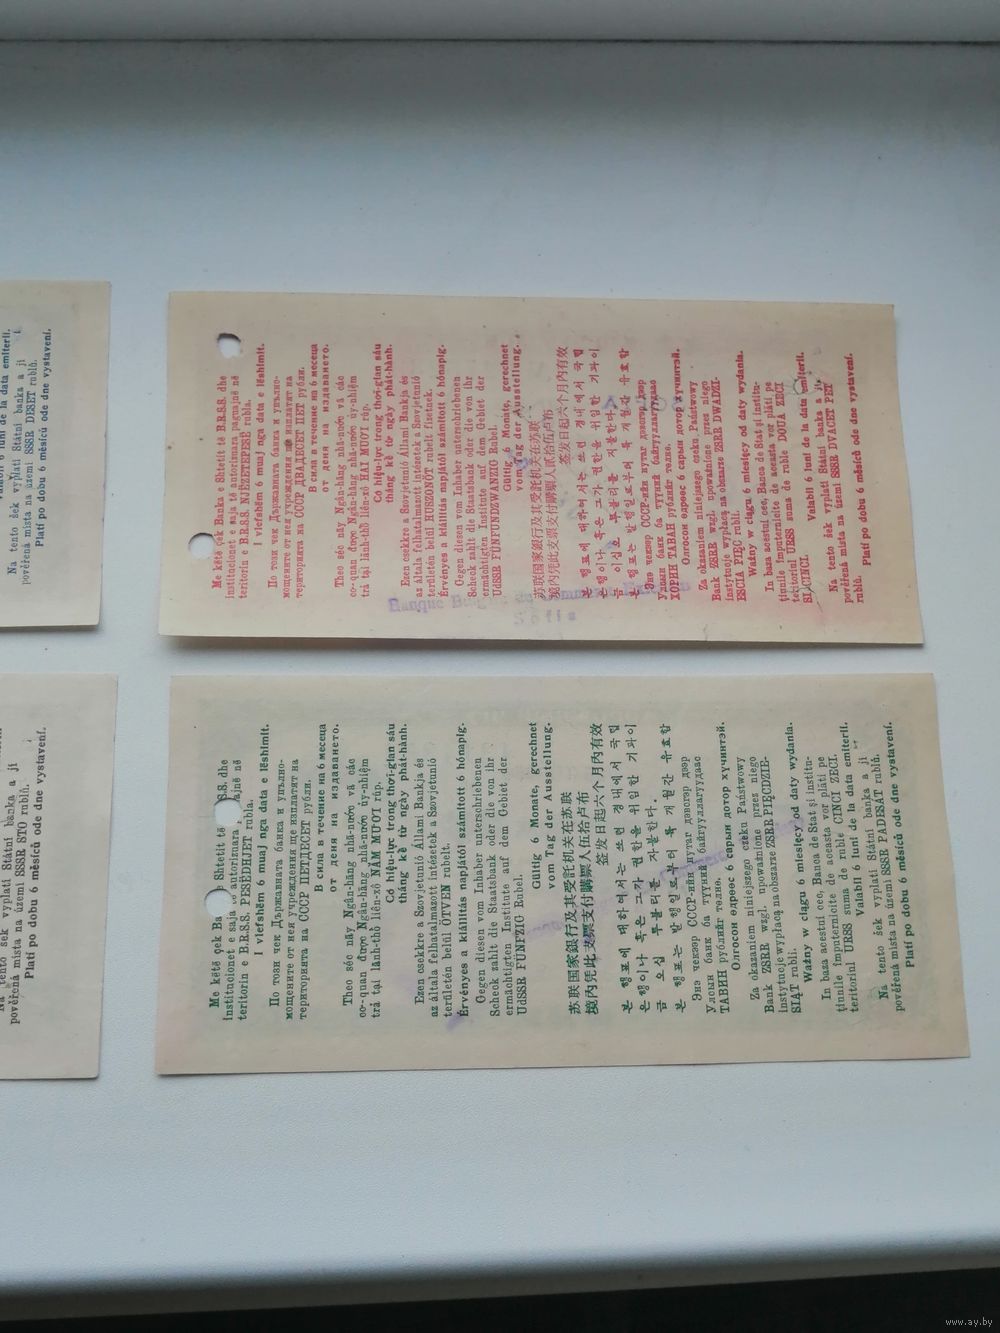 Valabil 6 luni de la data emiterii.
Na tento šek vyplatí Státní banka a jí
pověřená místa na území SSSR DESET rublů.
Platí po dobu 6 měsíců ode dne vystavení.
Na tento šek vyplatí Státní banka a jí
pověřená místa na území SSSR STO rublů.
Platí po dobu 6 měsíců ode dne vystavení.
Me këtë çek Banka e Shtetit të B.R.S.S. dhe
institucionet e saja të autorizuara paguajnë në
teritorin e B.R.S.S. NJËZETEPESË rubla.
I vlefshëm 6 muaj nga data e lëshimit.
По този чек Държавната банка и упълно-
мощените от нея учреждения ще изплатят на
територията на СССР ДВАДЕСЕТ ПЕТ рубли.
В сила в течение на 6 месеца
от деня на издаването.
Theo séc này Ngân-hàng nhà-nước và các
cơ-quan được Ngân-hàng nhà-nước ủy-nhiệm
trả tại lãnh-thổ liên-xô HAI MƯƠI rúp.
Có hiệu-lực trong thời-gian sáu
tháng kể từ ngày phát-hành.
Ezen csekkre a Szovjetunió Állami Bankja és
az általa felhatalmazott intézetek a Szovjetunió
területén belül HUSZONÖT rubelt fizetnek.
Érvényes a kiállítás napjától számított 6 hónapig.
Gegen diesen vom Inhaber unterschriebenen
Scheck zahlt die Staatsbank oder die von ihr
ermächtigten Institute auf dem Gebiet der
UdSSR FÜNFUNDZWANZIG Rubel.
Gültig 6 Monate, gerechnet
vom Tag der Ausstellung.
苏联国家銀行及其受託机关在苏联
境内凭此支票支付購票人贰拾伍卢布
签发日起六个月内有效
본 행표에 대하여 서는 쓰련 경내에서 국립
은행이나 혹은 그가 권한을 위임한 기관이
금 이십오 루블리를 지불한다.
본 행표는 발행일로부터 륙개월간 유효함
Энэ чекээр СССР-ийн нутаг дэвсгэр дээр
Улсын банк ба түүний байгууллагуудаас
ХОРИН ТАВАН рублийг төлнө.
Олгосон өдрөөс 6 сарын дотор хүчинтэй.
Za okazaniem niniejszego czeku Państwowy
Bank ZSRR wzgl. upoważnione przez niego
instytucje wypłacą na obszarze ZSRR DWADZI-
EŚCIA PIĘĆ rubli.
Ważny w ciągu 6 miesięcy od daty wydania.
In baza acestui cec, Banca de Stat și institu-
țiunile împuternicite de aceasta vor plăti pe
teritoriul URSS suma de ruble DOUĂ ZECI
ȘI CINCI.
Valabil 6 luni de la data emiterii.
Na tento šek vyplatí Státní banka a jí
pověřená místa na území SSSR DVACET PĚT
rublů.
Platí po dobu 6 měsíců ode dne vystavení.
Sofia
Me këtë çek Ba Shtetit të S.S. dhe
institucionet e saja të autorizuara ajnë në
teritorin e B.R.S.S. PESËDHJET rubla.
I vlefshëm 6 muaj nga data e lëshimit.
По този чек Държавната банка и упълно-
мощените от нея учреждения ще изплатят на
територията на СССР ПЕТДЕСЕТ рубли.
В сила в течение на 6 месеца
от деня на издаването.
Theo séc này Ngân-hàng nhà-nước và các
cơ-quan được Ngân-hàng nhà-nước ủy-nhiệm
trả tại lãnh-thổ liên-xô NĂM MƯƠI rúp.
Có hiệu-lực trong thời-gian sáu
tháng kể từ ngày phát-hành.
Ezen csekkre a Szovjetunió Állami Bankja és
az általa felhatalmazott intézetek a Szovjetunió
területén belül ÖTVEN rubelt.
Érvényes a kiállítás napjától számított 6 hónapig.
Gegen diesen vom Inhaber unterschriebenen
Scheck zahlt die Staatsbank oder die von ihr
ermächtigten Institute auf dem Gebiet der
UdSSR FÜNFZIG Rubel.
Gültig 6 Monate, gerechnet
vom Tag der Ausstellung.
苏联国家銀行及其受託机关在苏联
境内凭此支票支付購票人伍拾卢布
签发日起六个月内有效
본 행표에 대하여서는 쓰련 경내에서 국립
은행이나 혹은 그가 권한을 위임한 기관이
금 오십 루블리를 지불한다.
본 행표는 발행일로부터 륙개월간 유효함
Энэ чекээр СССР-ийн нутаг дэвсгэр дээр
Улсын банк ба түүний байгууллагуудаас
ТАВИН рублийг төлнө.
Олгосон өдрөөс 6 сарын дотор хүчинтэй.
Za okazaniem niniejszego czeku Państwowy
Bank ZSRR wzgl. upoważnione przez niego
instytucje wypłacą na obszarze ZSRR PIĘĆDZIE-
SIĄT rubli.
Ważny w ciągu 6 miesięcy od daty wydania.
In baza acestui cec, Banca de Stat și institu-
țiunile împuternicite de aceasta vor plăti pe
teritoriul URSS suma de ruble CINCI ZECI.
Valabil 6 luni de la data emiterii.
Na tento šek vyplatí Státní banka a jí
pověřená místa na území SSSR PADESÁT rublů.
Platí po dobu 6 měsíců ode dne vystavení.
www.ay.by